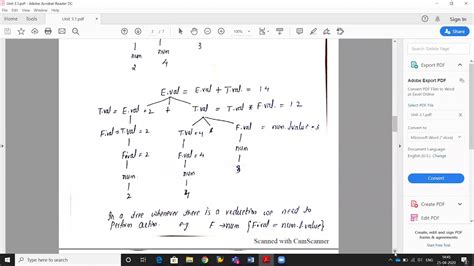 Unit 3.1.pdf - Adobe Acrobat Reader DC
File Edit View Window Help
Home Tools
Sign In
num
3
2
4
E.val = E.val + T.val = 14
T.val = E.val = 2 + T.val = T.val * F.val = 12
F.val = T.val = 2 T.val = 4 * F.val = num.lvalue = 3
F.val = 2 F.val = 4 num
num num 3
2 4
In a tree whenever there is a reduction we need to
perform action. eg F → num {F.val = num.lvalue}
Scanned with CamScanner
Export PDF
Adobe Export PDF
Convert PDF Files to Word
or Excel Online
Select PDF File
Convert to
Microsoft Word (*.docx)
Document Language:
English (U.S.) Change
Convert
Create PDF
Edit PDF
Create, edit and sign PDF
forms & agreements
Start Free Trial
Type here to search
ENG
25-04-2020